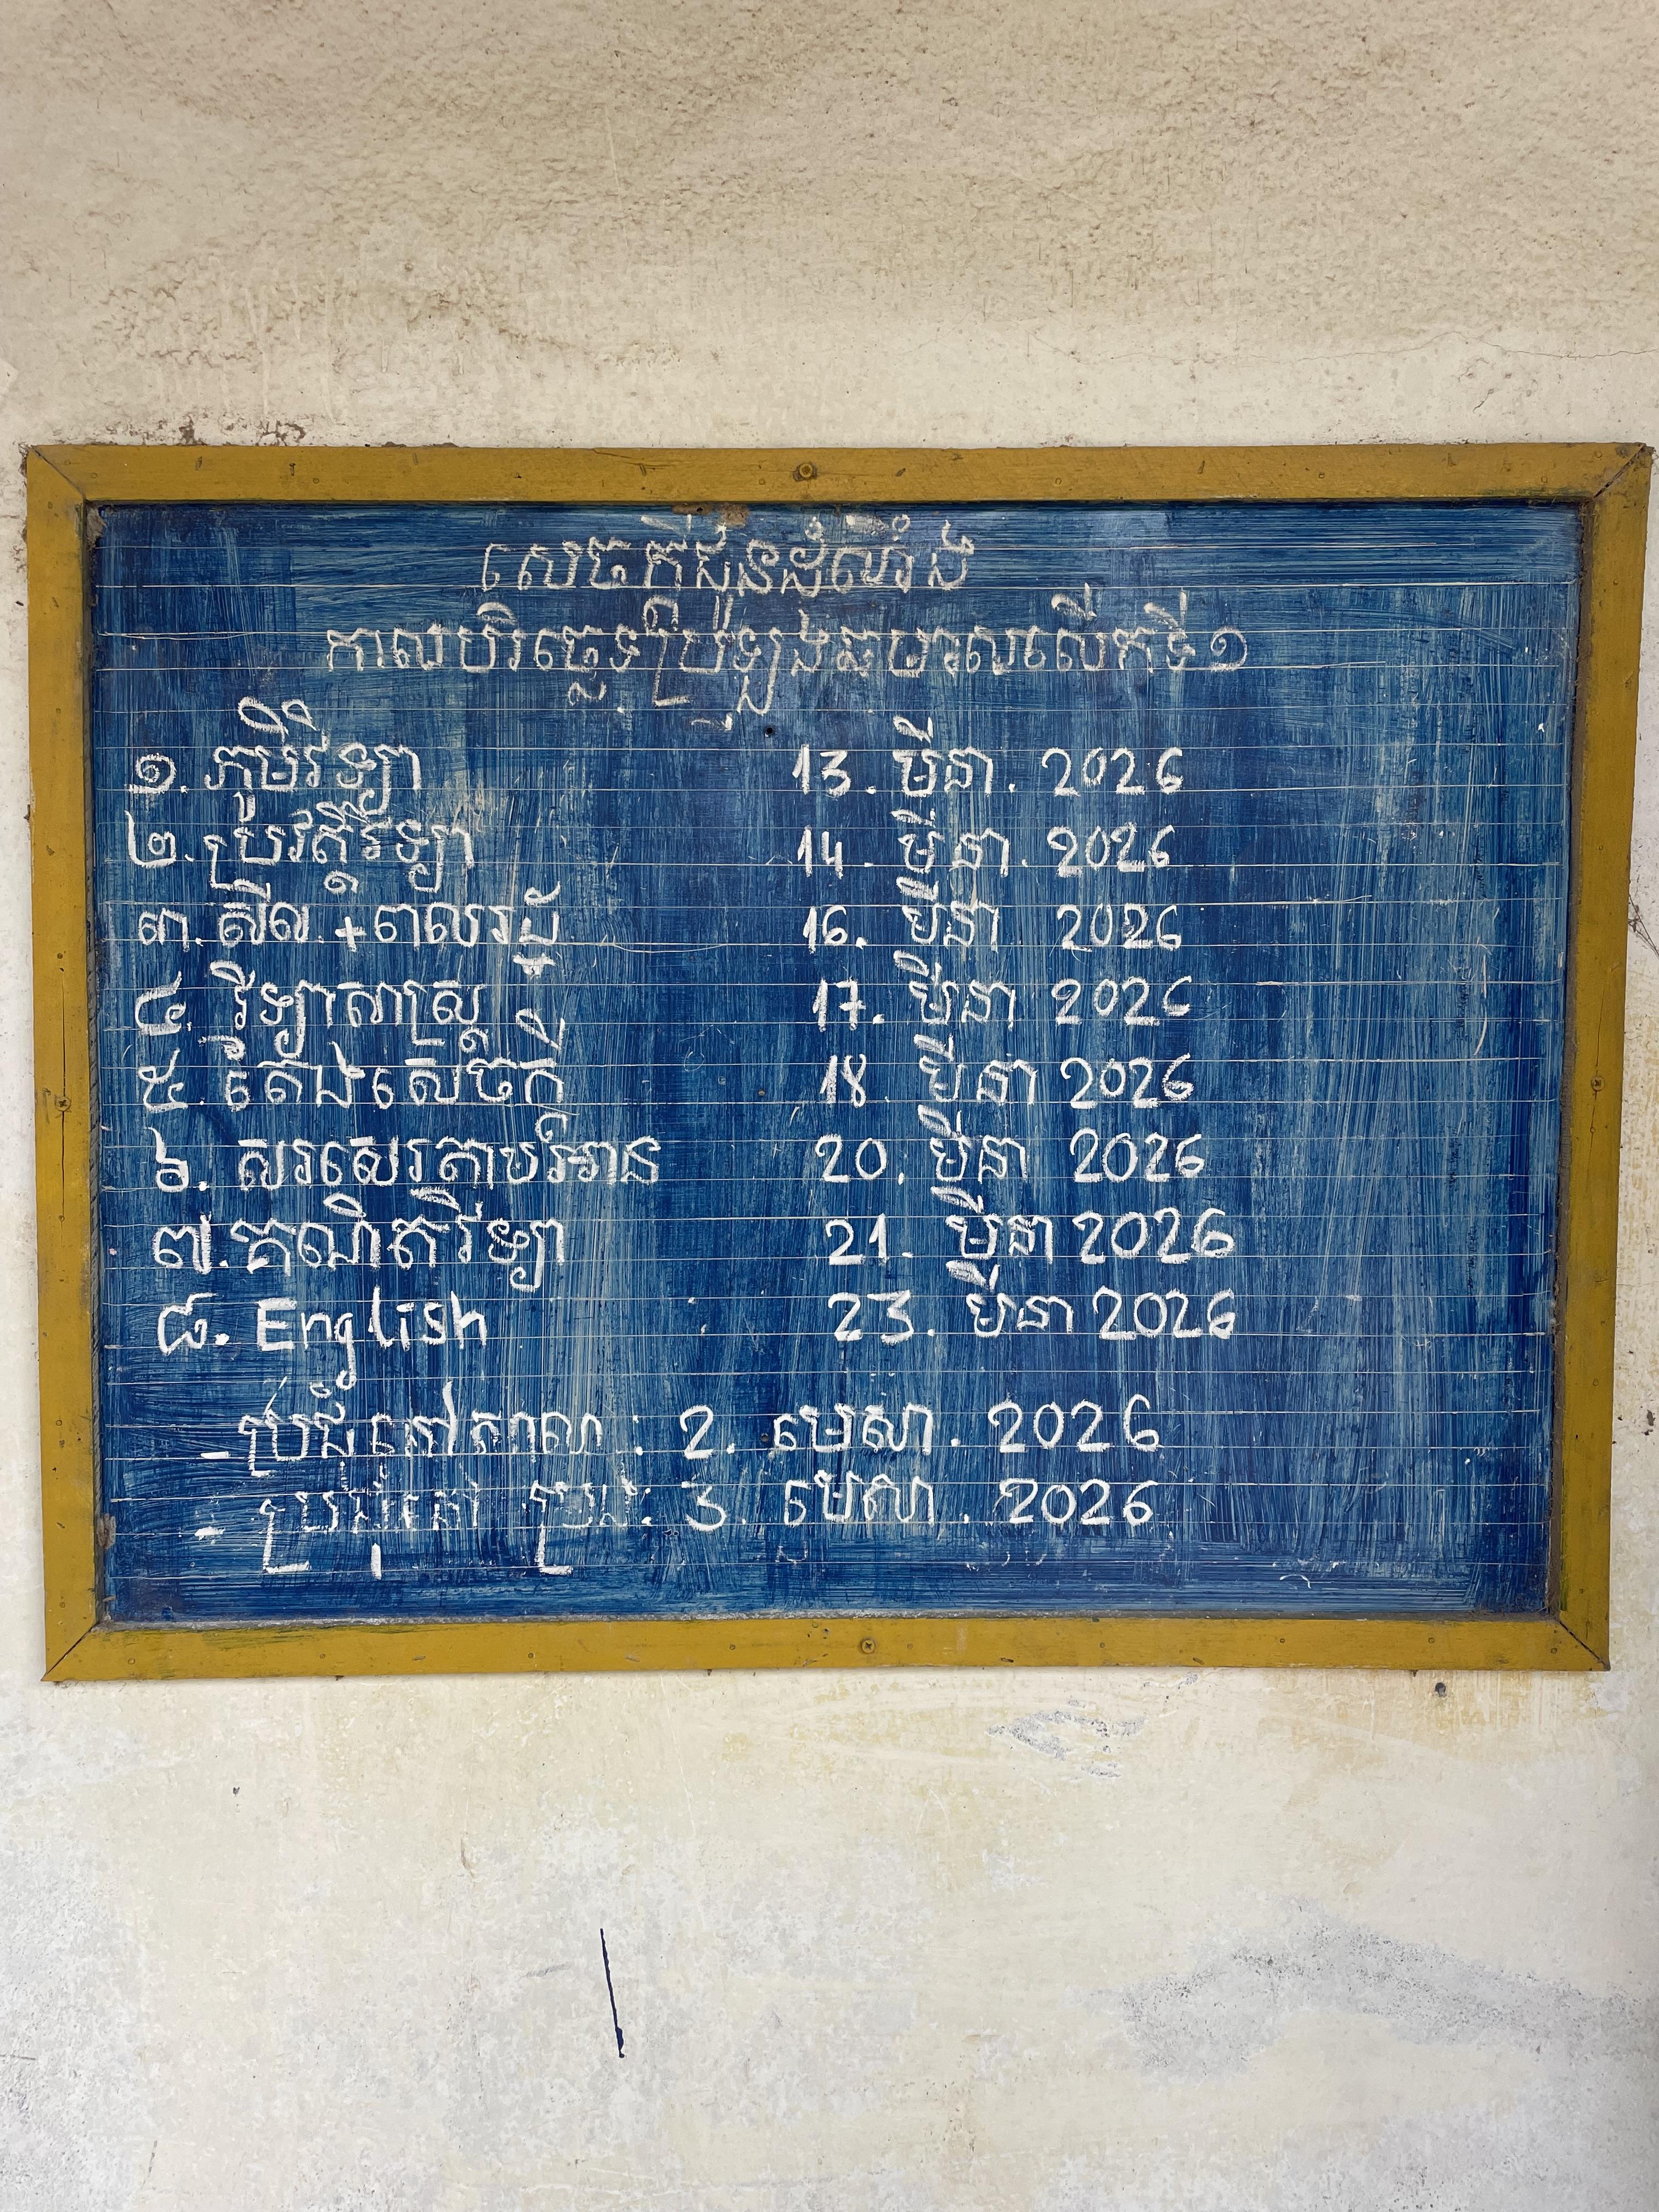 សេចក្តីជូនដំណឹង
កាលបរិច្ឆេទប្រឡងឆមាសលើកទី១
១. ភូមិវិទ្យា 13. មីនា. 2026
២. ប្រវត្តិវិទ្យា 14. មីនា. 2026
៣. សីល. + ពលរដ្ឋ 16. មីនា 2026
៤. វិទ្យាសាស្ត្រ 17. មីនា 2026
៥. តែងសេចក្តី 18. មីនា 2026
៦. សរសេរតាមអាន 20. មីនា 2026
៧. គណិតវិទ្យា 21. មីនា 2026
៨. English 23. មីនា 2026
- ប្រជុំនៅសាលា : 2. មេសា. 2026
- ប្រជុំនៅ : 3. មេសា. 2026